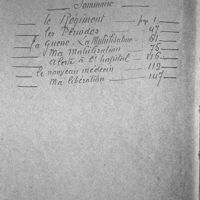 Sommaire
le Régiment — page 1
les Périodes — 47
La Guerre - La Mobilisation — 61
Ma Mobilisation — 75
à l'hôpital — 116
le nouveau médecin — 119
Ma libération — 147